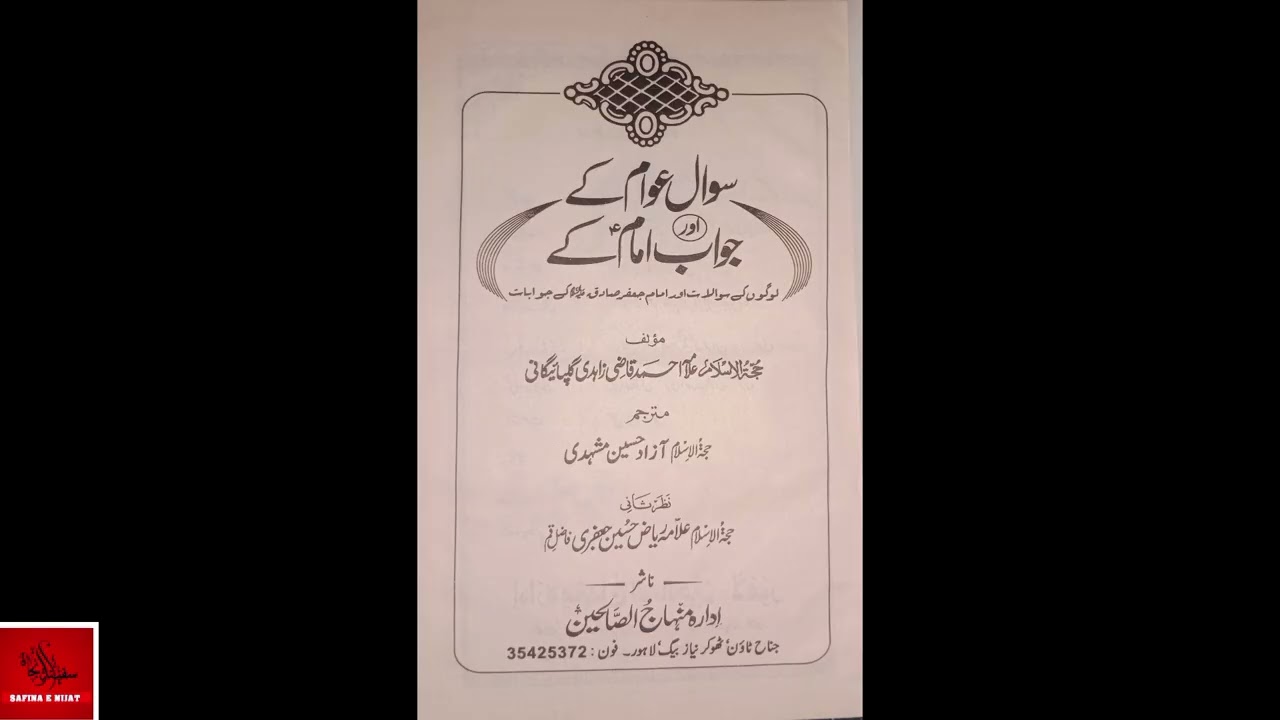 سوال عوام کے
اور
جواب امامؑ کے
لوگوں کے سوالات اور امام جعفر صادق علیہ السلام کے جوابات
مؤلف
حجۃ الاسلام علامہ احمد قاضی زاہدی گلپائیگانی
مترجم
حجۃ الاسلام آزاد حسین مشہدی
نظر ثانی
حجۃ الاسلام علامہ ریاض حسین جعفری فاضل قم
ناشر
ادارہ منہاج الصالحین
جناح ٹاؤن' ٹھوکر نیاز بیگ' لاہور۔ فون : 35425372
SAFINA E NIJAT